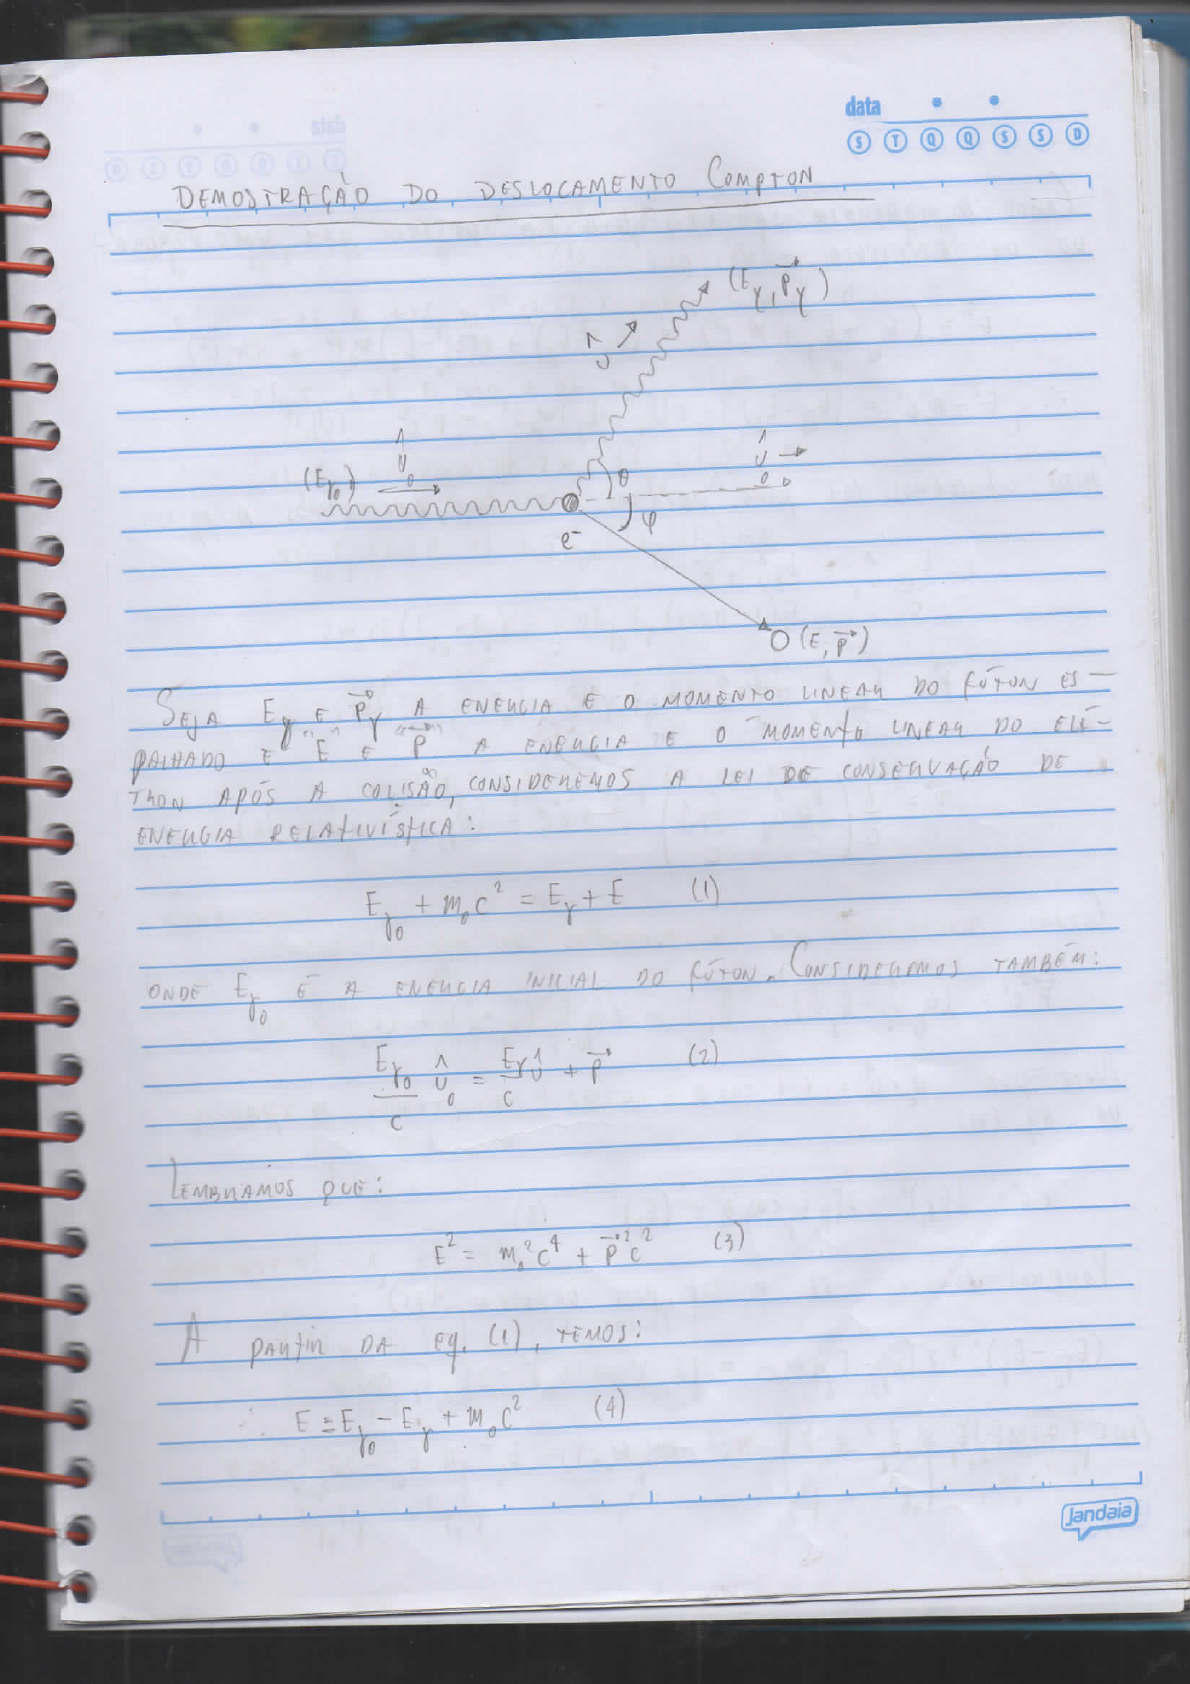 data
S T Q Q S S D
DEMOSTRAÇÃO DO DESLOCAMENTO COMPTON
(Eγ, p⃗γ)
û
(Eγ₀)
û₀
û₀
θ
φ
e⁻
(E, p⃗)
SEJA Eγ E p⃗γ A ENERGIA E O MOMENTO LINEAR DO FÓTON ES-
PALHADO E "E" E "p⃗" A ENERGIA E O MOMENTO LINEAR DO ELÉ-
TRON APÓS A COLISÃO, CONSIDEREMOS A LEI DE CONSERVAÇÃO DE
ENERGIA RELATIVÍSTICA:
Eγ₀ + m₀c² = Eγ + E (1)
ONDE Eγ₀ É A ENERGIA INICIAL DO FÓTON. CONSIDEREMOS TAMBÉM:
Eγ₀/c û₀ = Eγ/c û + p⃗ (2)
LEMBRAMOS QUE:
E² = m₀²c⁴ + p⃗²c² (3)
A PARTIR DA EQ. (1), TEMOS:
∴ E = Eγ₀ − Eγ + m₀c² (4)
Jandaia